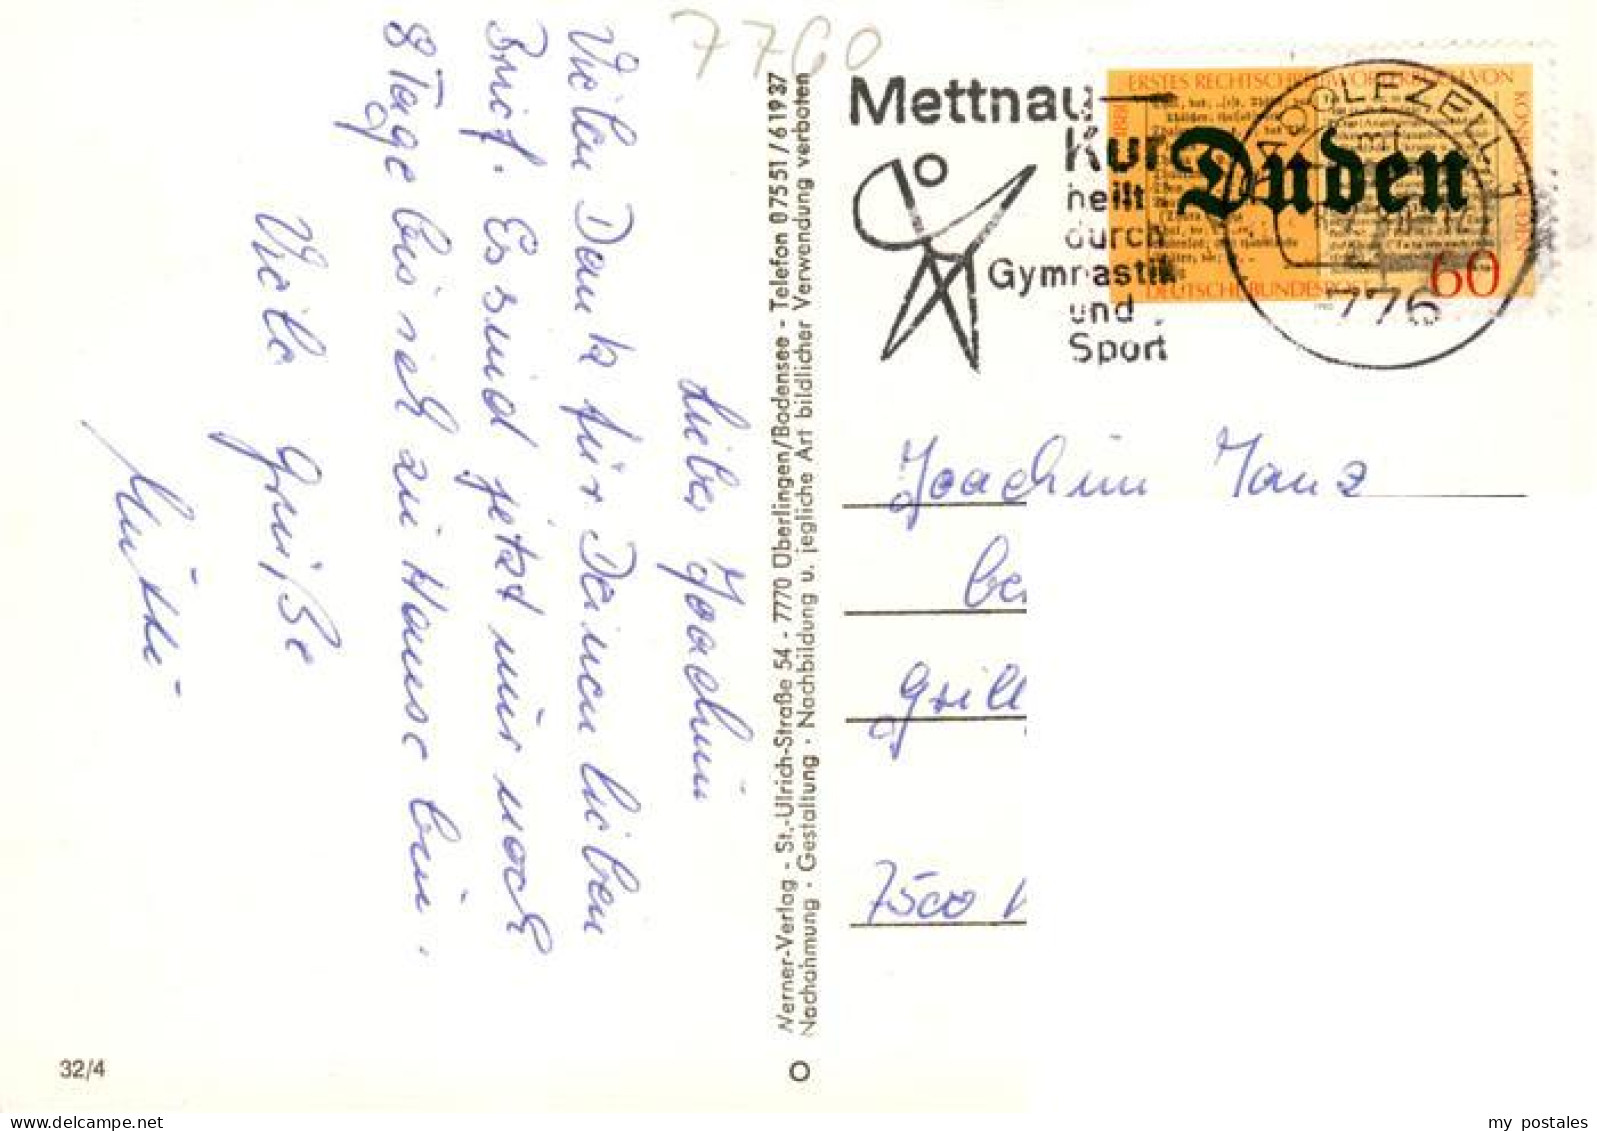 7760
Mettnau-
Kur
heilt
durch
Gymnastik
und
Sport
ERSTES RECHTSCHREIBWÖRTERBUCH VON
KONRAD DUDEN
1881
Duden
DEUTSCHE BUNDESPOST
60
RADOLFZELL 1
776
Lieber Joachim
Vielen Dank für Deinen lieben
Brief. Es sind jetzt nur noch
8 Tage bis ich zu Hause bin.
Viele Grüße
Werner-Verlag - St.-Ulrich-Straße 54 - 7770 Überlingen/Bodensee - Telefon 07551/61937
Nachahmung · Gestaltung · Nachbildung u. jegliche Art bildlicher Verwendung verboten
Joachim
bei
Grill
7500
32/4
delcampe.net
my_postales